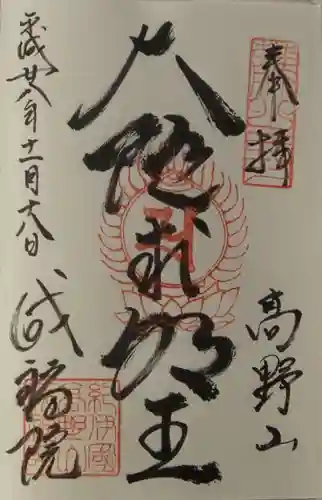 奉拝
高野山
大随求明王
平成廿八年十一月十八日
成福院
紀伊國
高野山